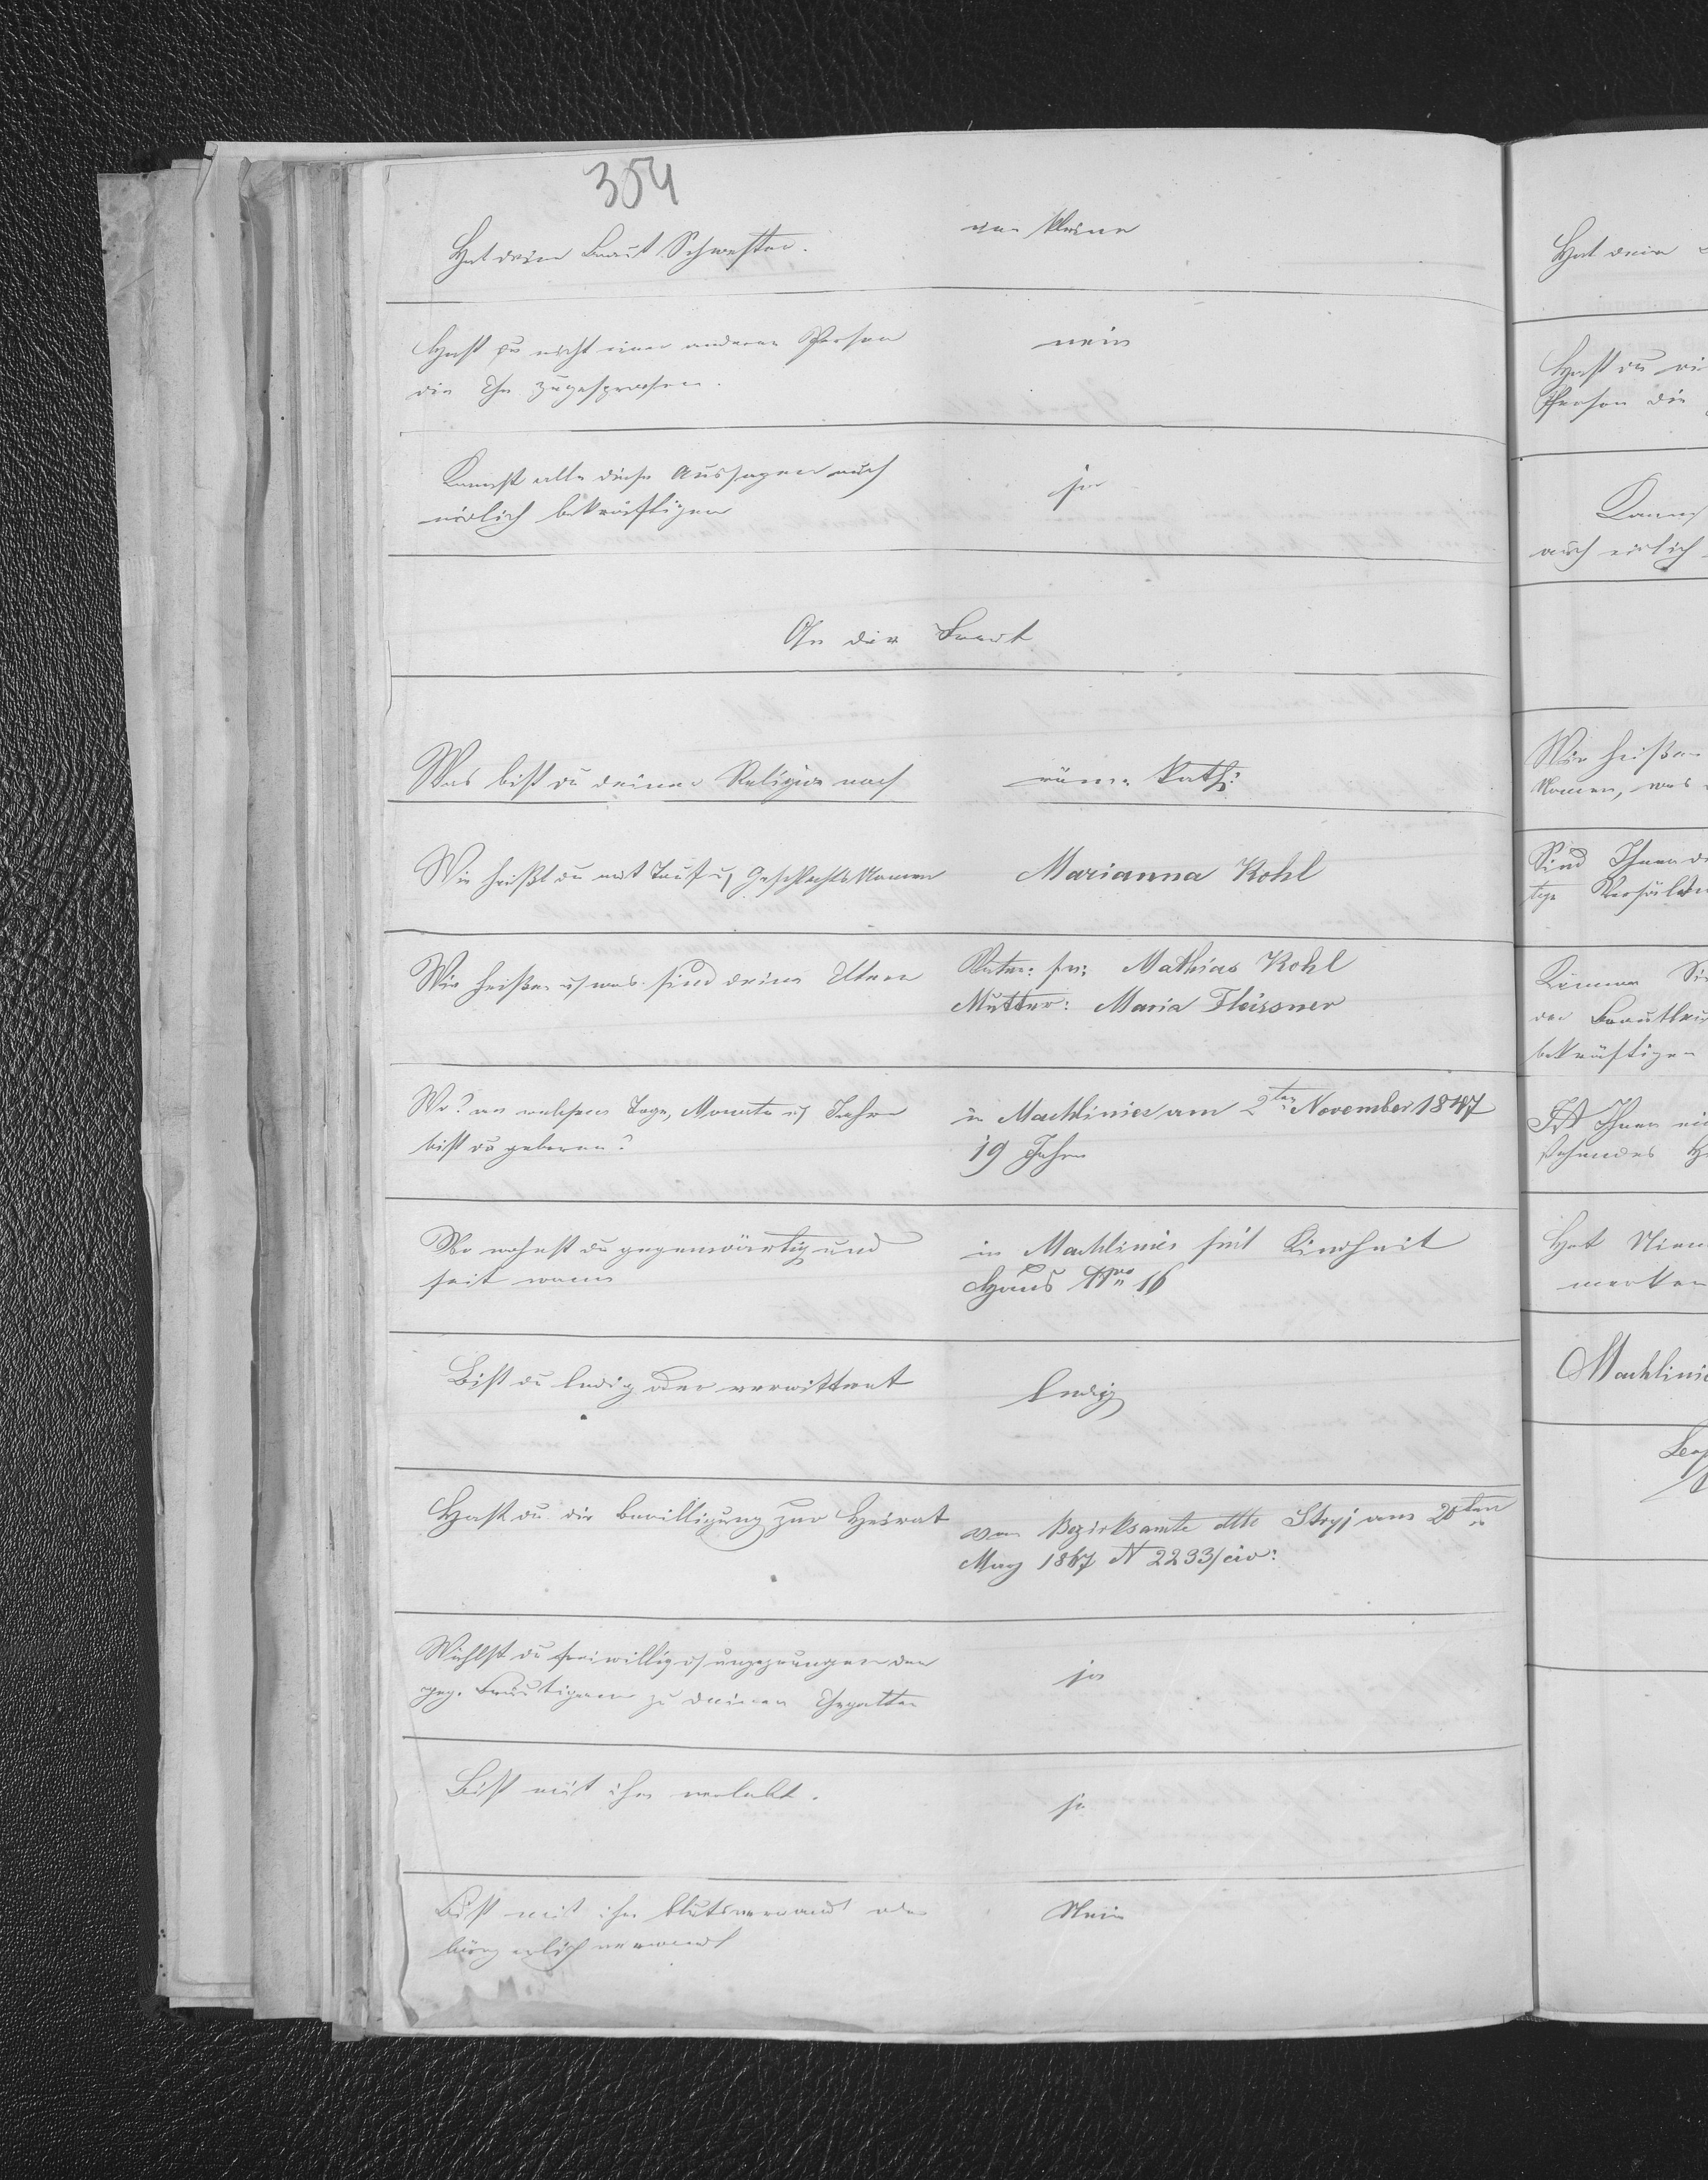 354
Hat deine Braut Schwester. nur kleine
Hast du nicht einer anderen Person nein
die Ehe zugesprochen.
Kannst alle diese Aussagen auch ja
eidlich bekräftigen
An die Braut
Was bist du deiner Religion nach röm: kath:
Wie heißt du mit Tauf u. Geschlechts Namen Marianna Kohl
Wie heißen u. was sind deine Eltern Vater: Mathias Kohl
Mutter: Maria Fleissner
Wo? an welchem Tage, Monate u. Jahre in Machliniec am 2ten November 1847
bist du geboren? 19 Jahre
Wo wohnst du gegenwärtig und in Machliniec seit Kindheit
seit wann Haus Nro 16
Bist du ledig oder verwittwet ledig
Hast du die Bewilligung zur Heirat Vom Bezirksamte dtto Stryj am 20ten
May 1867 N 2233/civ:
Wählst du freiwillig u. ungezwungen den ja
geg. Bräutigam zu deinen Ehegatten
Bist mit ihm verlobt. ja
Bist mit ihm blutsverwandt oder Nein
bürgerlich verwandt
Hat deine
Hast du ni
Person die
Kannst
auch eidlich
Wie heißen
Namen, was
Sind Ihnen d
tige Verhält
Können Si
der Brautleu
bekräftigen
Ist Ihnen ei
stehendes H
Hat Niem
merken
Machlinie